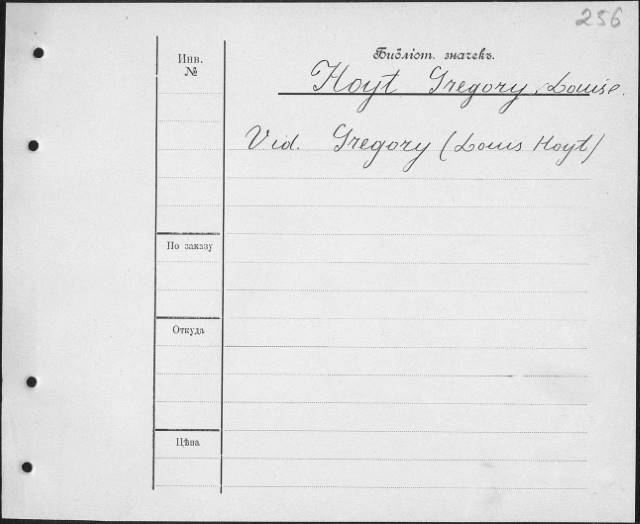 256
Инв.
№
Библіот. значекъ.
Hoyt Gregory, Louise.
Vid. Gregory (Louis Hoyt)
По заказу
Откуда
Цѣна